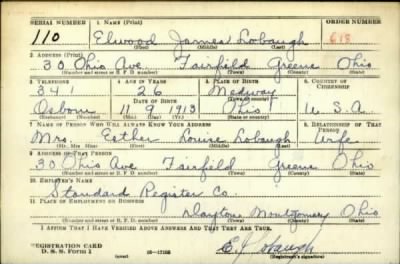 SERIAL NUMBER 1. NAME (Print) ORDER NUMBER
110 Elwood James Lobaugh 618
(First) (Middle) (Last)
2. ADDRESS (Print)
30 Ohio Ave. Fairfield Greene Ohio
(Number and street or R. F. D. number) (Town) (County) (State)
3. TELEPHONE 4. AGE IN YEARS 5. PLACE OF BIRTH 6. COUNTRY OF CITIZENSHIP
341 26 Medway
(Town or county)
DATE OF BIRTH
Osborn 11 9 1913 Ohio U.S.A.
(Exchange) (Number) (Mo.) (Day) (Yr.) (State or country)
7. NAME OF PERSON WHO WILL ALWAYS KNOW YOUR ADDRESS 8. RELATIONSHIP OF THAT PERSON
Mrs. Esther Louise Lobaugh Wife
(Mr., Mrs., Miss) (First) (Middle) (Last)
9. ADDRESS OF THAT PERSON
30 Ohio Ave Fairfield Greene Ohio
(Number and street or R. F. D. number) (Town) (County) (State)
10. EMPLOYER'S NAME
Standard Register Co.
11. PLACE OF EMPLOYMENT OR BUSINESS
Dayton Montgomery Ohio
(Number and street or R. F. D. number) (Town) (County) (State)
I AFFIRM THAT I HAVE VERIFIED ABOVE ANSWERS AND THAT THEY ARE TRUE.
REGISTRATION CARD
D. S. S. Form 1 (over) E J Lobaugh
(Registrant's signature)